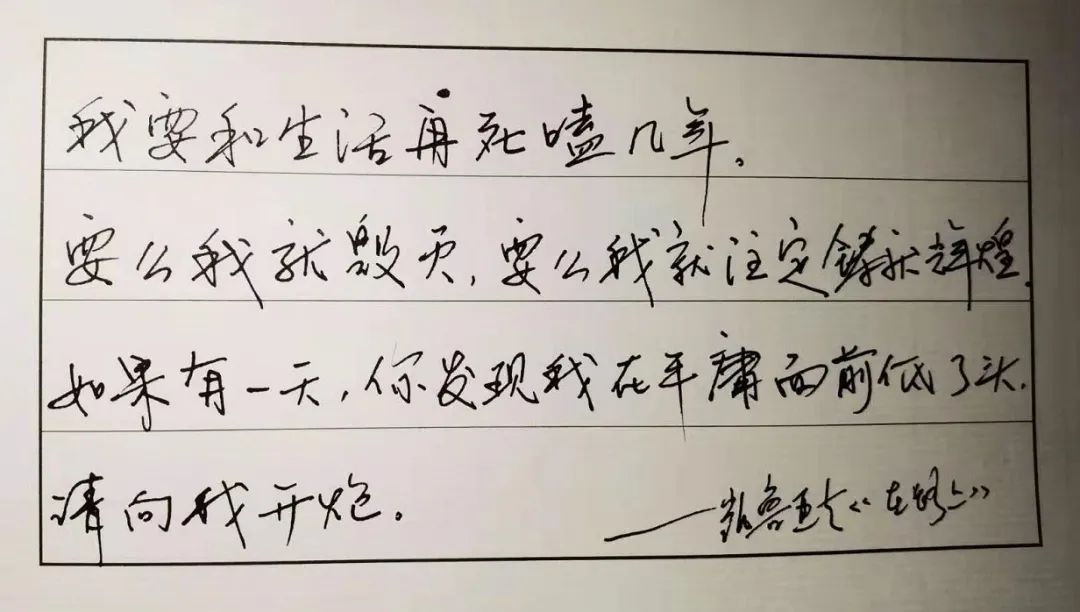 我要和生活再死嗑几年，
要么我就毁灭，要么我就注定铸就辉煌。
如果有一天，你发现我在平庸面前低了头，
请向我开炮。
——凯鲁亚克《在路上》